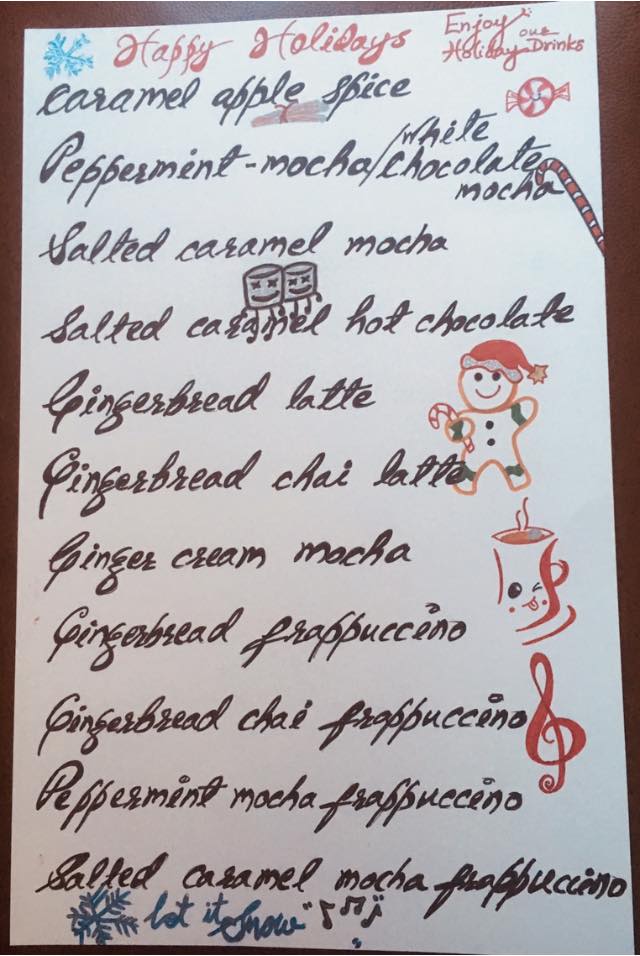 Happy Holidays
Enjoy
our
Holiday Drinks
Caramel apple spice
White
Peppermint-mocha/Chocolate
mocha
Salted caramel mocha
Salted caramel hot chocolate
Gingerbread latte
Gingerbread chai latte
Ginger cream mocha
Gingerbread frappuccino
Gingerbread chai frappuccino
Peppermint mocha frappuccino
Salted caramel mocha frappuccino
let it Snow